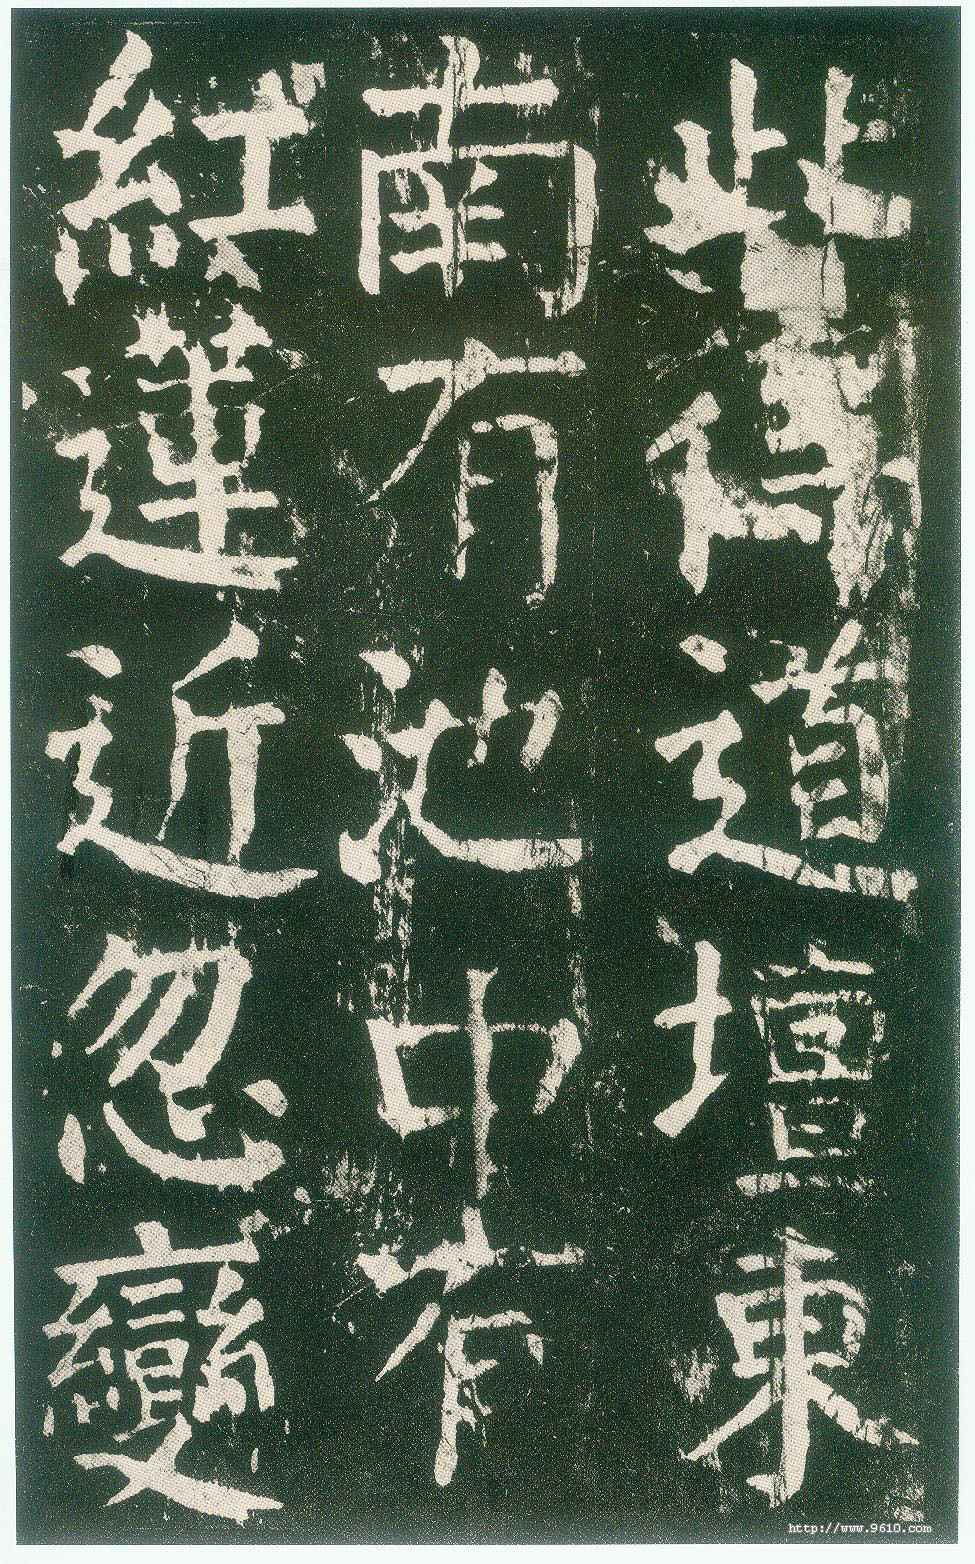 此得道壇東
南有池中有
紅蓮近忽變
http://www.9610.com